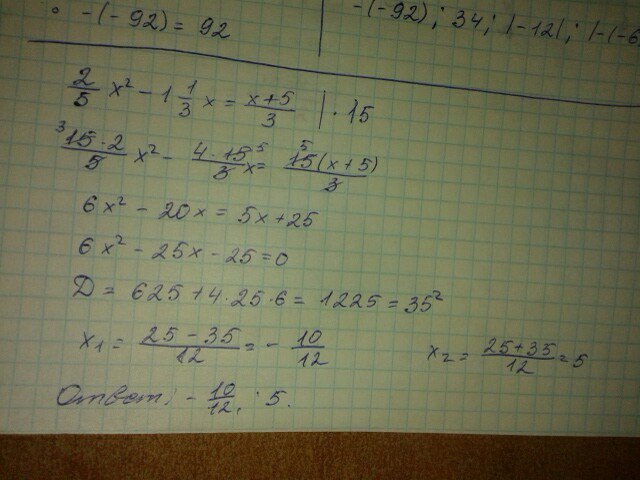 -(-92) = 92
-(-92); 34; |-12|; |-(-6
2/5 x² - 1 1/3 x = x+5/3 | · 15
³15·2/5 x² - 4·15⁵/3 x = ⁵15(x+5)/3
6x² - 20x = 5x+25
6x² - 25x - 25 = 0
D = 625 + 4·25·6 = 1225 = 35²
x₁ = 25-35/12 = - 10/12
x₂ = 25+35/12 = 5
Ответ: - 10/12; 5.